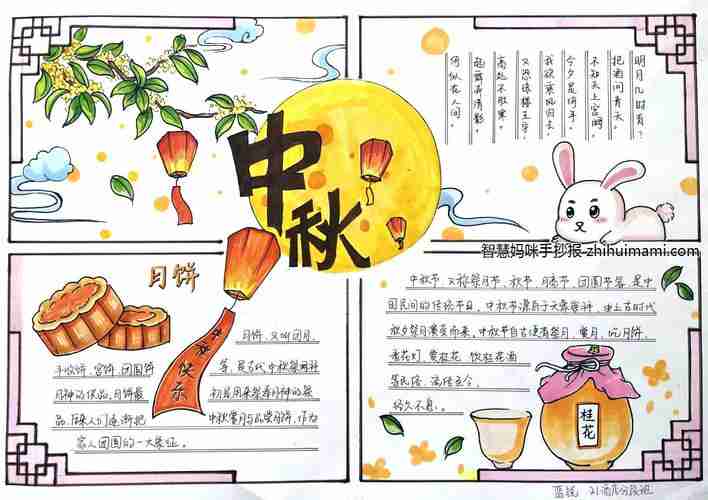 中秋
明月几时有？
把酒问青天。
不知天上宫阙，
今夕是何年。
我欲乘风归去，
又恐琼楼玉宇，
高处不胜寒。
起舞弄清影，
何似在人间。
智慧妈咪手抄报-zhihuimami.com
月饼
月饼、又叫团月、
丰收饼、宫饼、团圆饼
等、是古代中秋祭拜
月神的供品、月饼最
初是用来祭奉月神的祭
品、后来人们逐渐把
中秋赏月与品尝月饼、作为
家人团圆的一大象征。
中秋
快乐
中秋节、又称祭月节、秋节、月夕节、团圆节等、是中
国民间的传统节日。中秋节源自于天象崇拜、由上古时代
秋夕祭月演变而来。中秋节自古便有祭月、赏月、吃月饼、
看花灯、赏桂花、饮桂花酒
等民俗、流传至今、
经久不息。
桂花